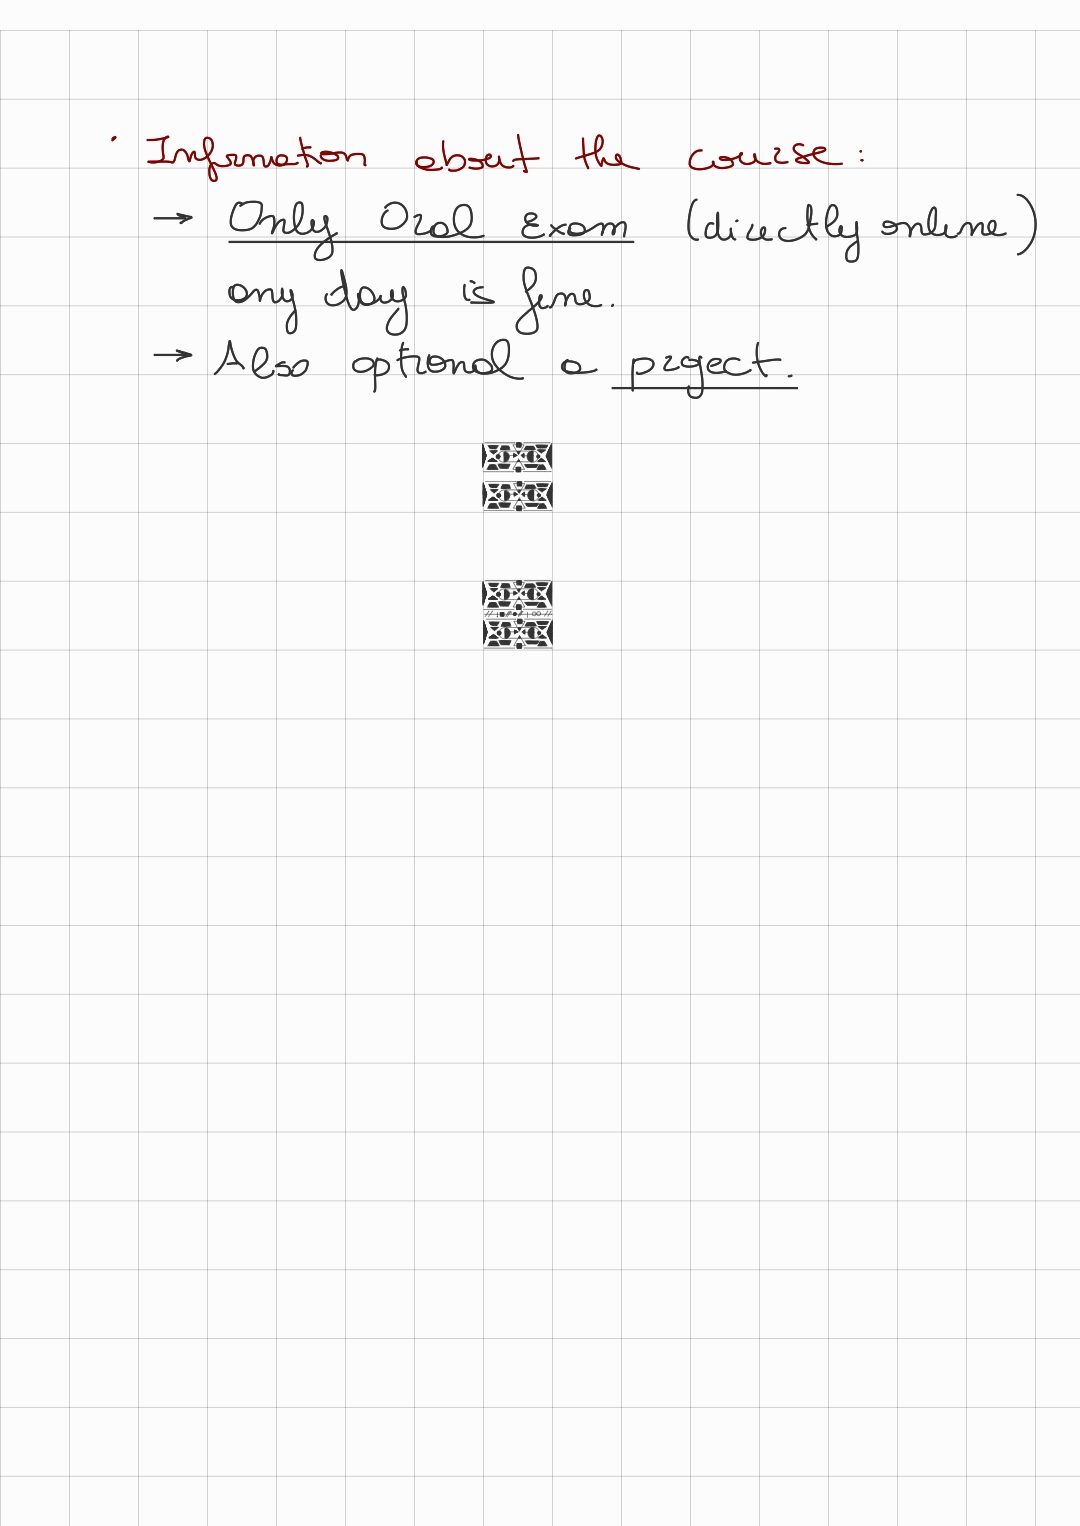 · Information about the course:
→ Only Oral Exam (directly online)
any day is fine.
→ Also optional a project.